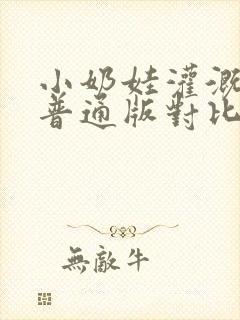 小奶娃灌溉
普通版對比
無敵牛